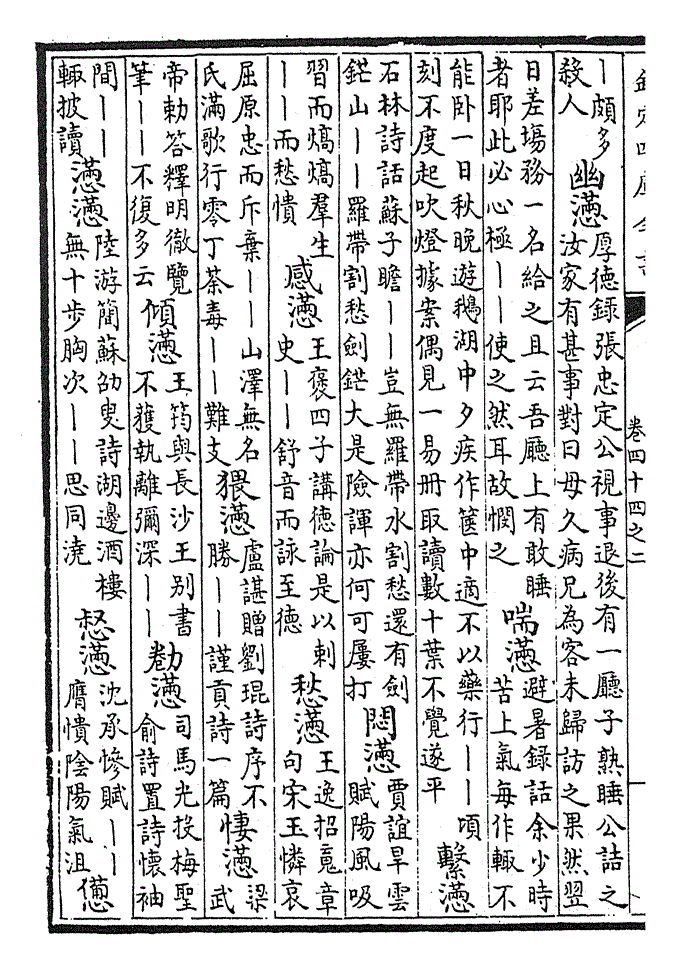 欽定四庫全書
卷四十四之二
｜頗多
殺人
幽懣
厚德錄張忠定公視事退後有一廳子熟睡公詰之
汝家有甚事對曰母久病兄為客未歸訪之果然翌
日差場務一名給之且云吾廳上有敢睡
者耶此必心極｜｜使之然耳故憫之
喘懣
避暑錄話余少時
苦上氣每作輒不
能卧一日秋晚遊鵝湖中夕疾作篋中適不以藥行｜｜頃
刻不度起吹燈據案偶見一易冊取讀數十葉不覺遂平
繫懣
石林詩話蘇子瞻｜｜豈無羅帶水割愁還有劍
鋩山｜｜羅帶割愁劍鋩大是險諢亦何可屢打
悶懣
賈誼旱雲
賦陽風吸
習而熇熇群生
｜｜而愁憒
感懣
王褒四子講德論是以刺
史｜｜舒音而詠至德
愁懣
王逸招䰟章
句宋玉憐哀
屈原忠而斥棄｜｜山澤無名
氏滿歌行零丁荼毒｜｜難支
猥懣
盧諶贈劉琨詩序不
勝｜｜謹貢詩一篇
悽懣
梁
武
帝勅答釋明徹覽
筆｜｜不復多云
傾懣
王筠與長沙王别書
不獲執離彌深｜｜
勌懣
司馬光投梅聖
俞詩置詩懷袖
間｜｜
輒披讀
懣懣
陸游簡蘇邵叟詩湖邊酒樓
無十步胸次｜｜思同澆
懣
沈承慘賦｜｜
膺憒陰陽氣沮
憊